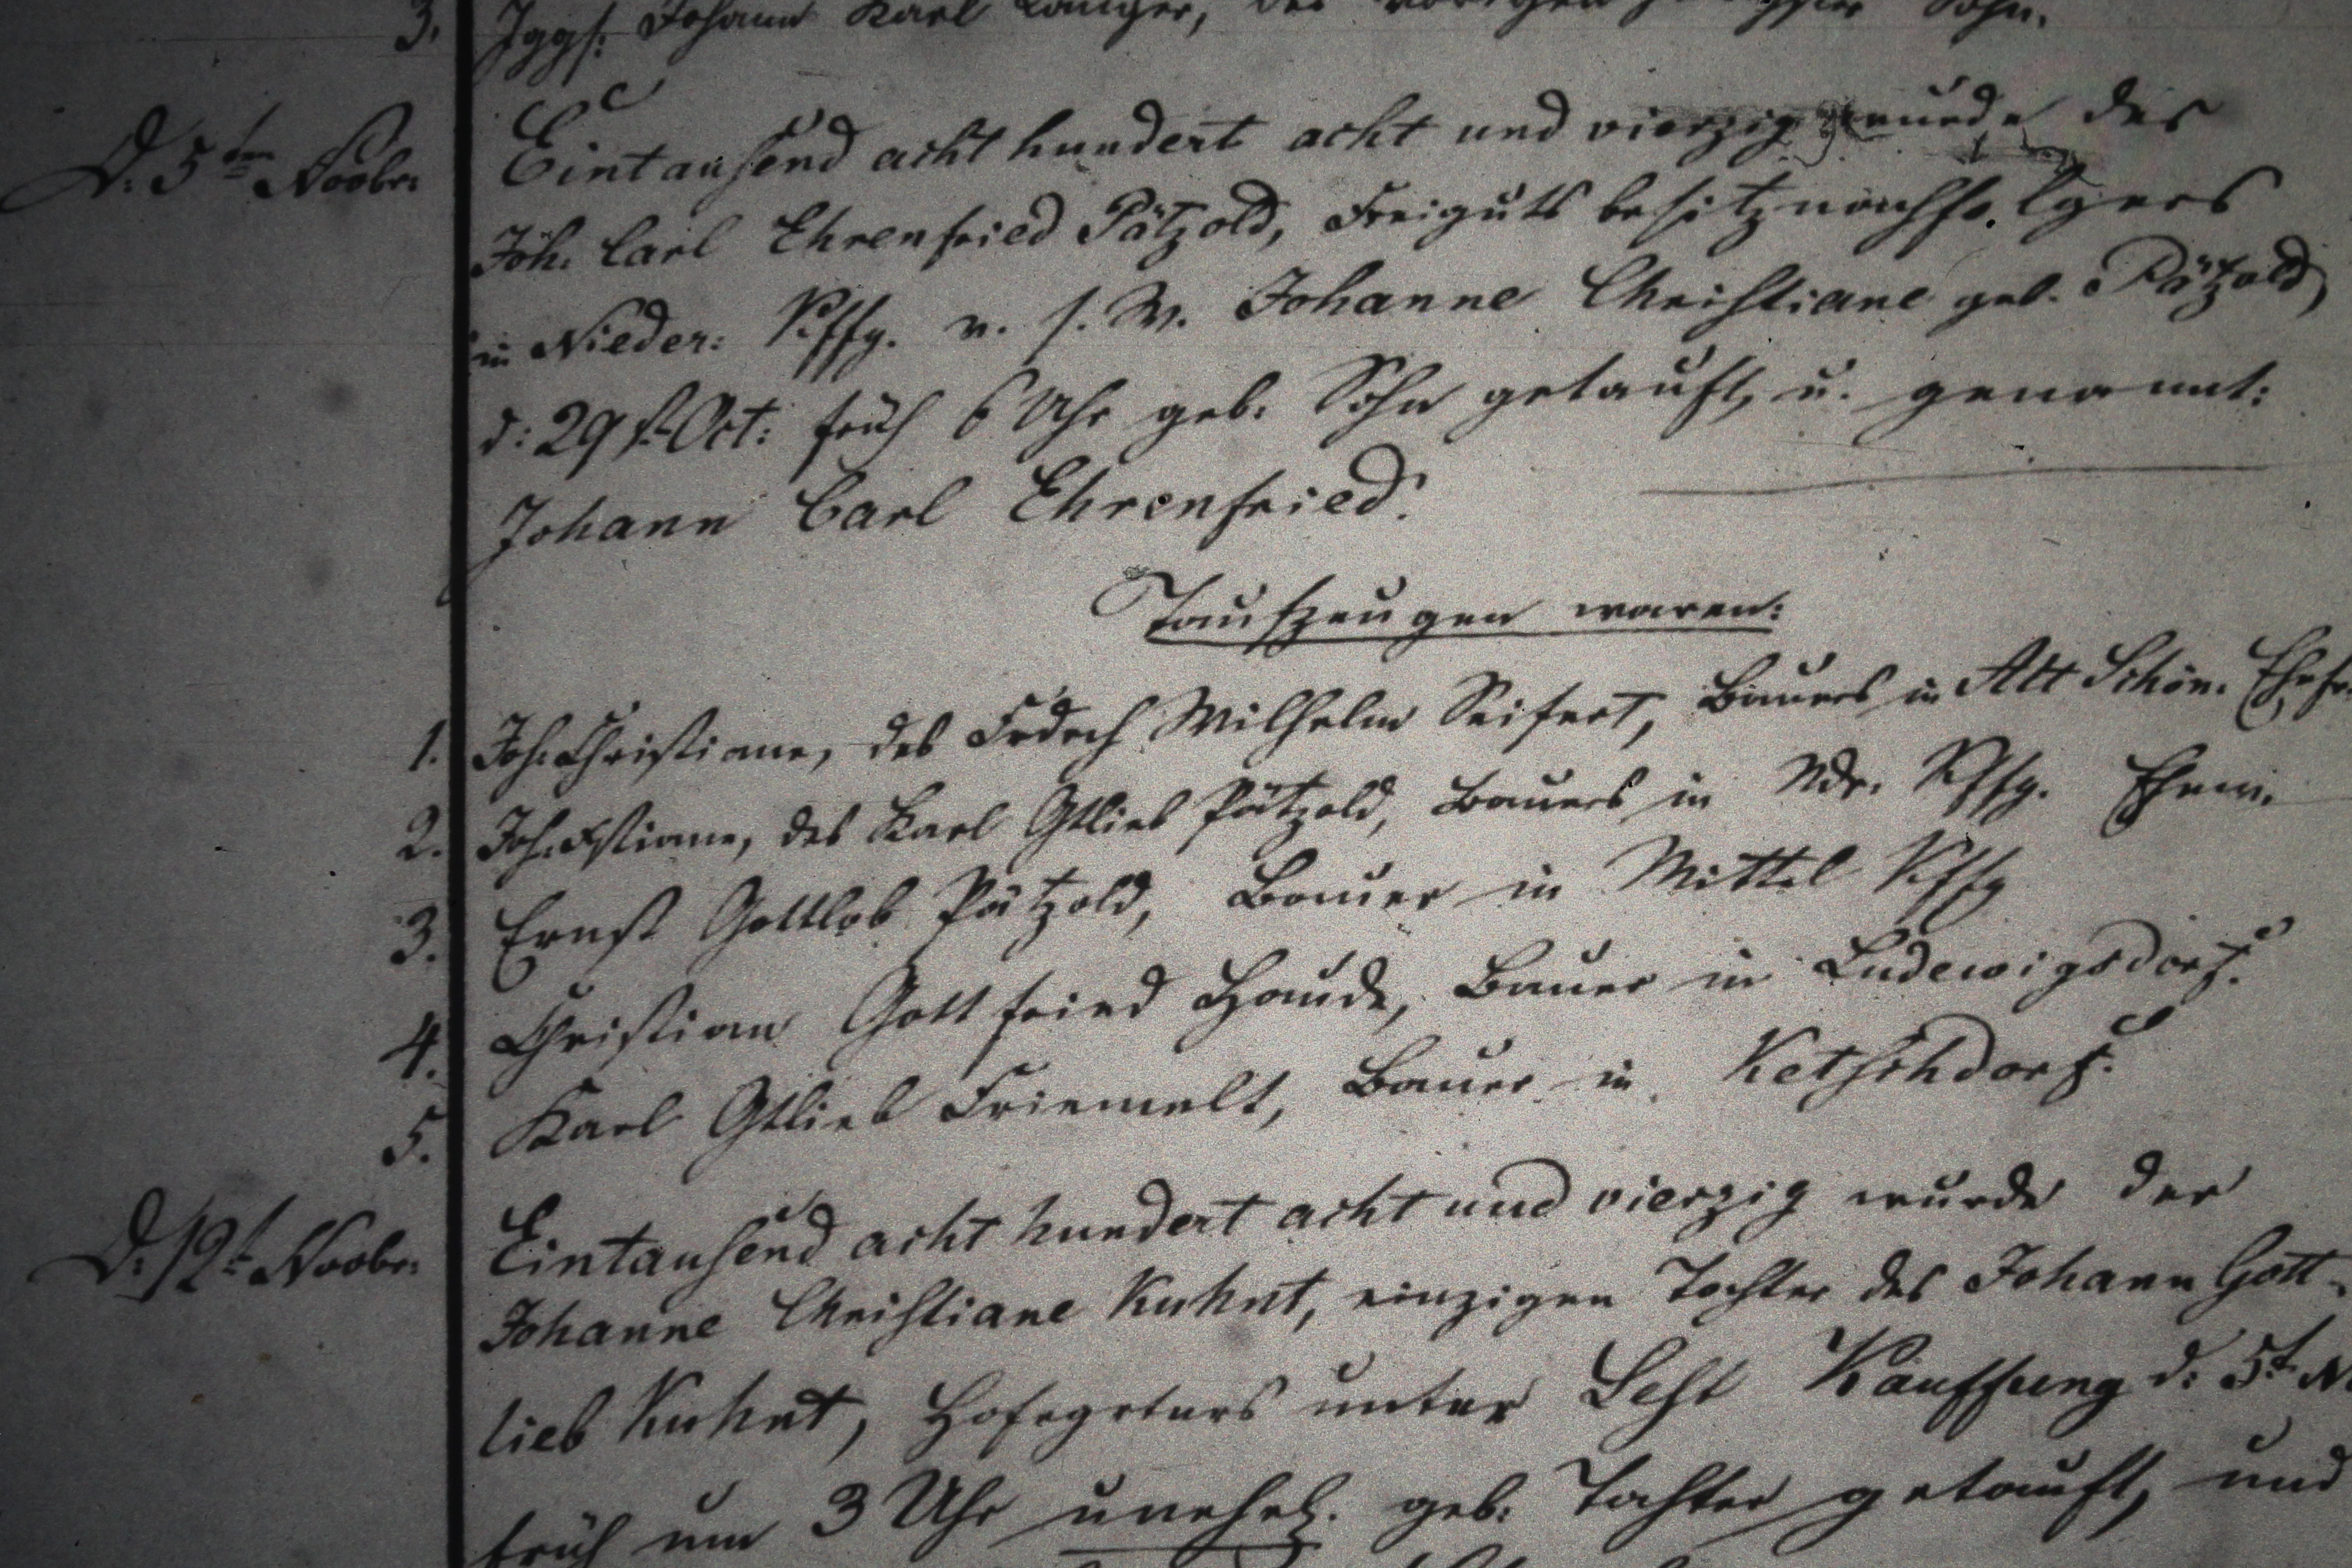 3. Jggs. Johann Karl Langer, des vorigen Sohn.
D. 5ten Novbr. Eintausend acht hundert acht und vierzig wurde des
Joh. Carl Ehrenfried Pätzold, Freiguts besitznachfolgers
in Nieder: Kffg. v. s. W. Johanne Christiane geb. Pätzold,
d: 29st. Oct: früh 6 Uhr geb. Sohn getauft, u. genannt:
Johann Carl Ehrenfried.
Taufzeugen waren:
1. Joh. Christiane, des Frdrch Wilhelm Seifert, Bauers in Alt Schön. Ehefr
2. Joh. Xstiane, des Karl Gtlieb Pätzold, Bauers in Ndr. Kffg. Ehew.
3. Ernst Gottlob Pätzold, Bauer in Mittel Kffg
4. Christian Gottfried Haude, Bauer in Ludewigsdorf.
5. Karl Gtlieb Friemelt, Bauer in Ketschdorf.
D. 12t. Novbr. Eintausend acht hundert acht und vierzig wurde der
Johanne Christiane Kuhnt, einzigen Tochter des Johann Gott-
lieb Kuhnt, Hofegrtnrs unter Lest Kauffung d: 5t. N
früh um 3 Uhr unehel. geb. Tochter getauft, und